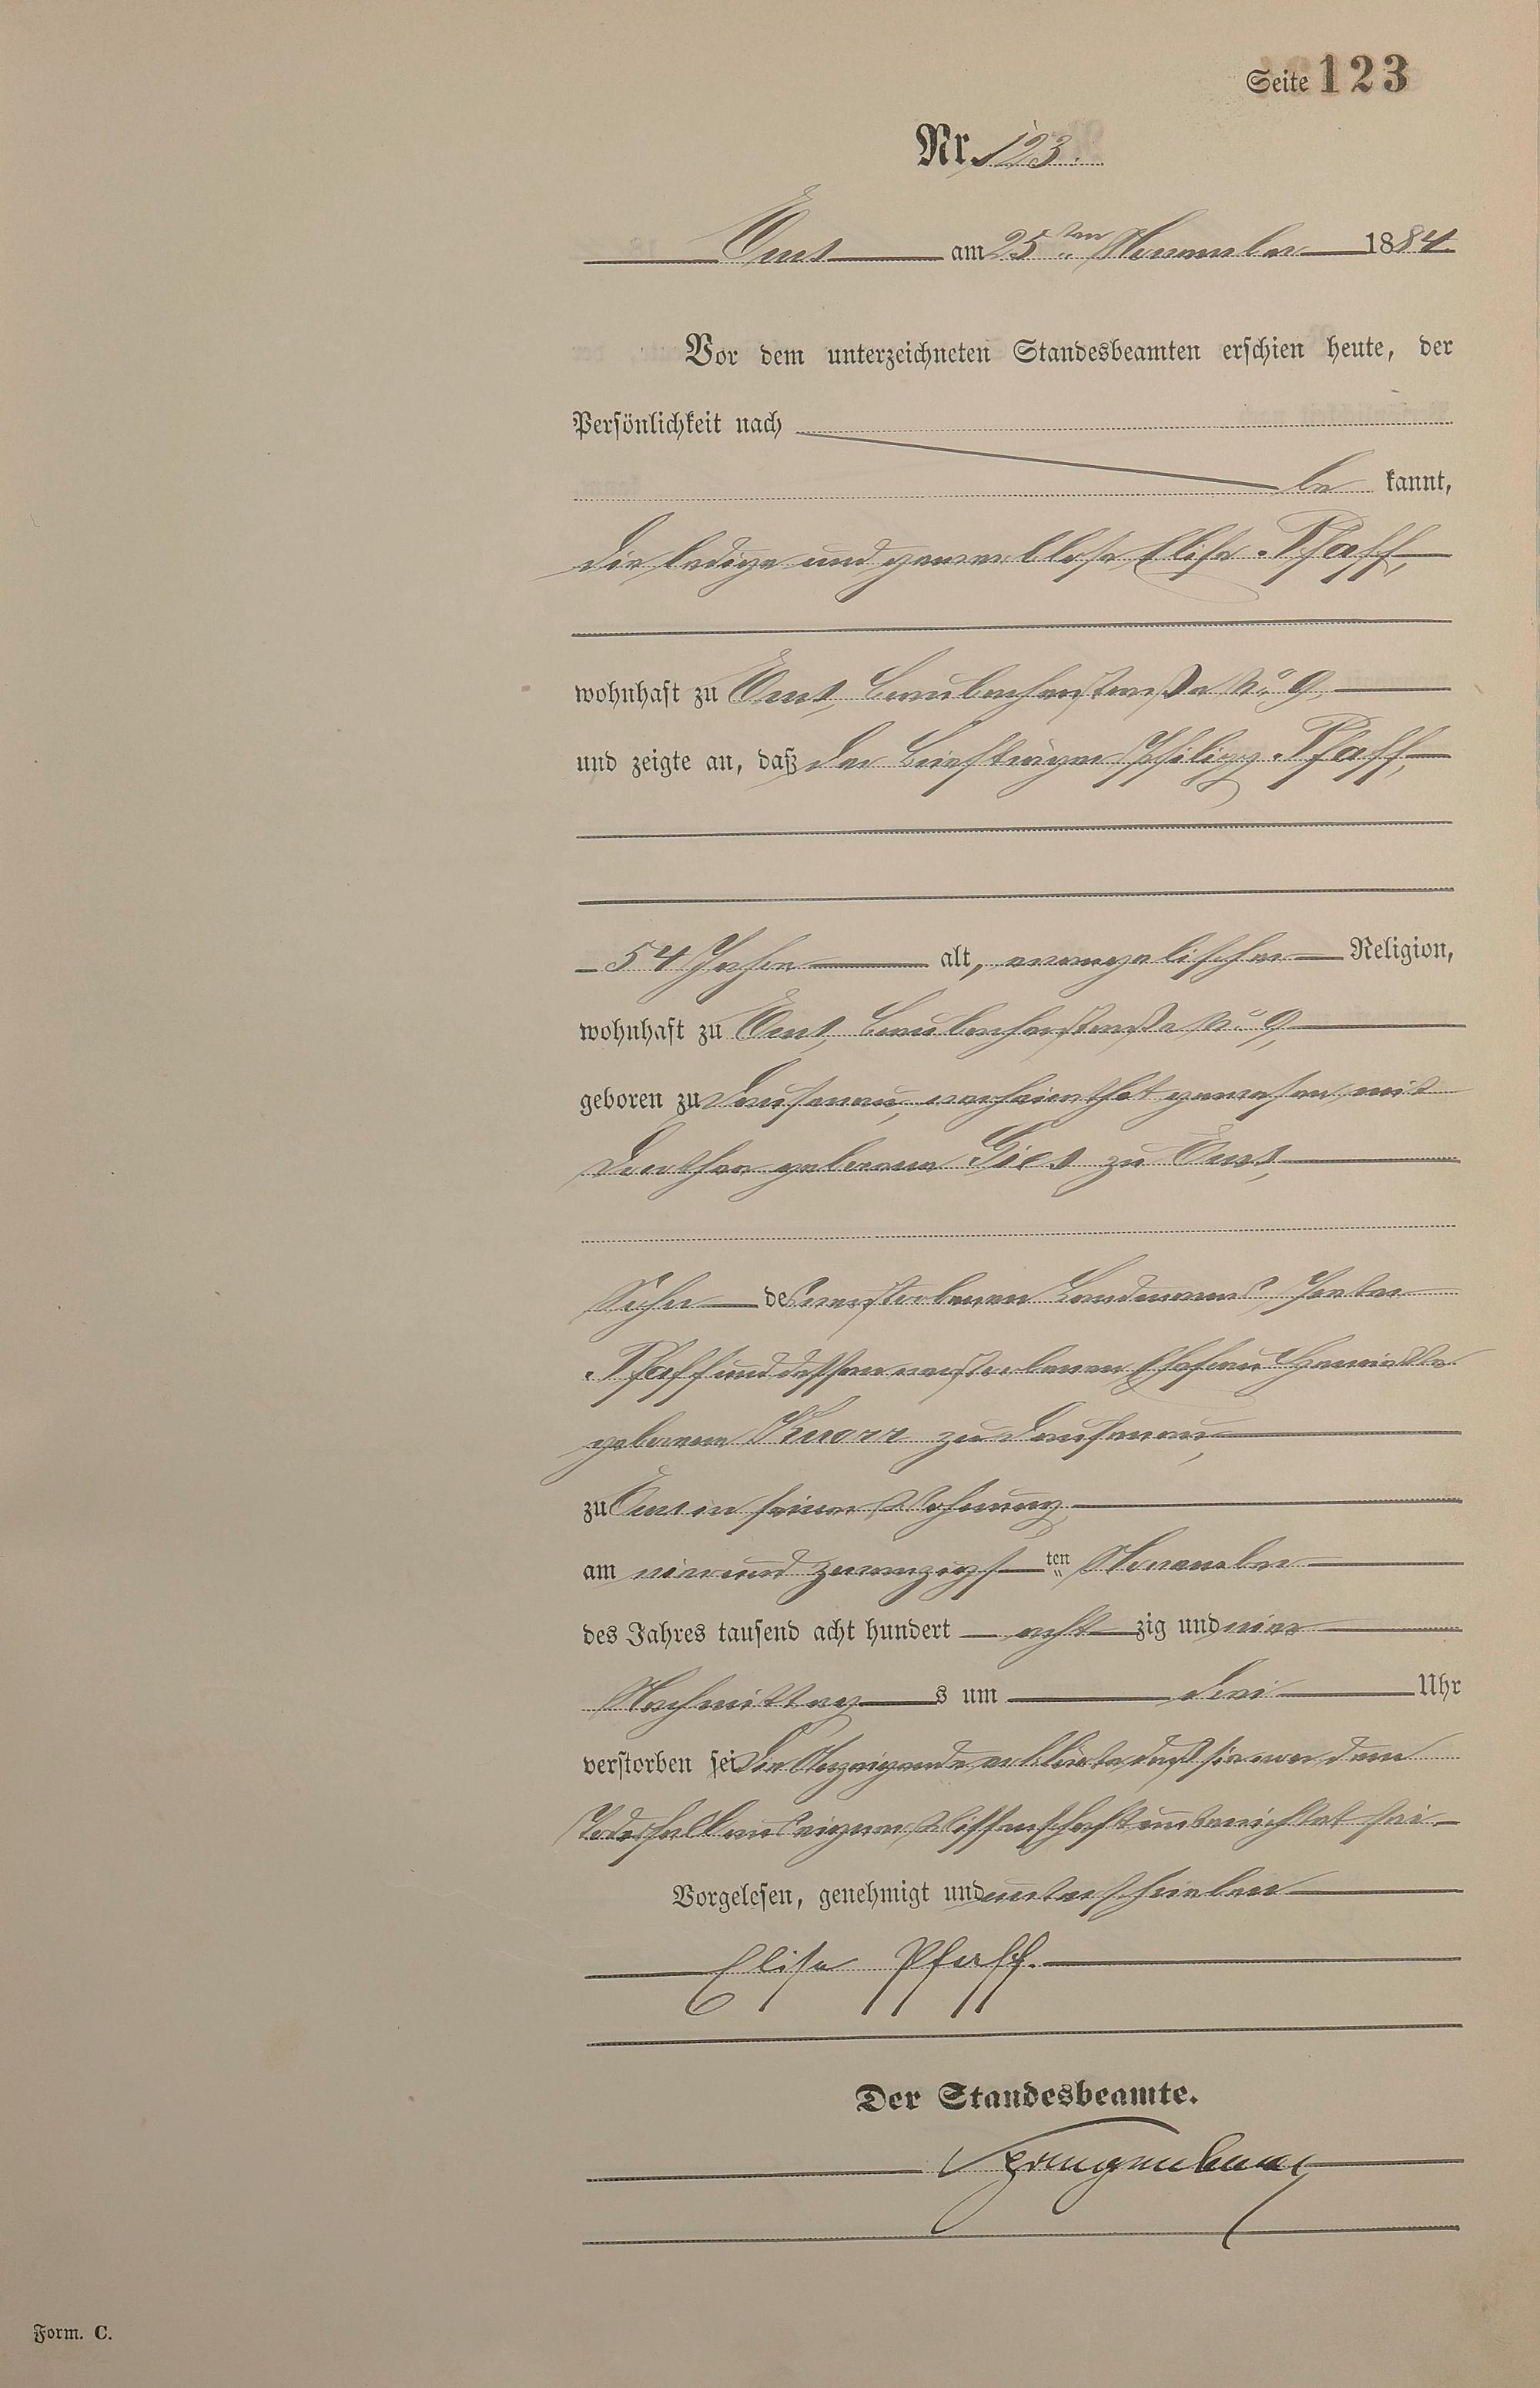 Seite 123
Nr. 123.
Ems am 25ten November 1884
Vor dem unterzeichneten Standesbeamten erschien heute, der
Persönlichkeit nach
be kannt,
die ledige und gewerblose Elise Pfaff,
wohnhaft zu Ems, Braubacherstraße No 9,
und zeigte an, daß der Briefträger Philipp Pfaff,
54 Jahre alt, evangelischer Religion,
wohnhaft zu Ems, Braubacherstraße No 9,
geboren zu Dausenau, verheirathet gewesen mit
Dorthea geborene Gies zu Ems,
Sohn des verstorbenen Landmanns
Pfaff und dessen verstorbenen Ehefrau Henriette
geborene Knorr zu Dausenau,
zu Ems in seiner Wohnung
am vierund zwanzigsten November
des Jahres tausend acht hundert acht zig und vier
Nachmittags um drei Uhr
verstorben sei. Die Anzeigende erklärte daß sie von dem
Todesfall aus eigener Wissenschaft unterrichtet sei.
Vorgelesen, genehmigt und unterschrieben
Elise Pfaff.
Der Standesbeamte.
Form. C.